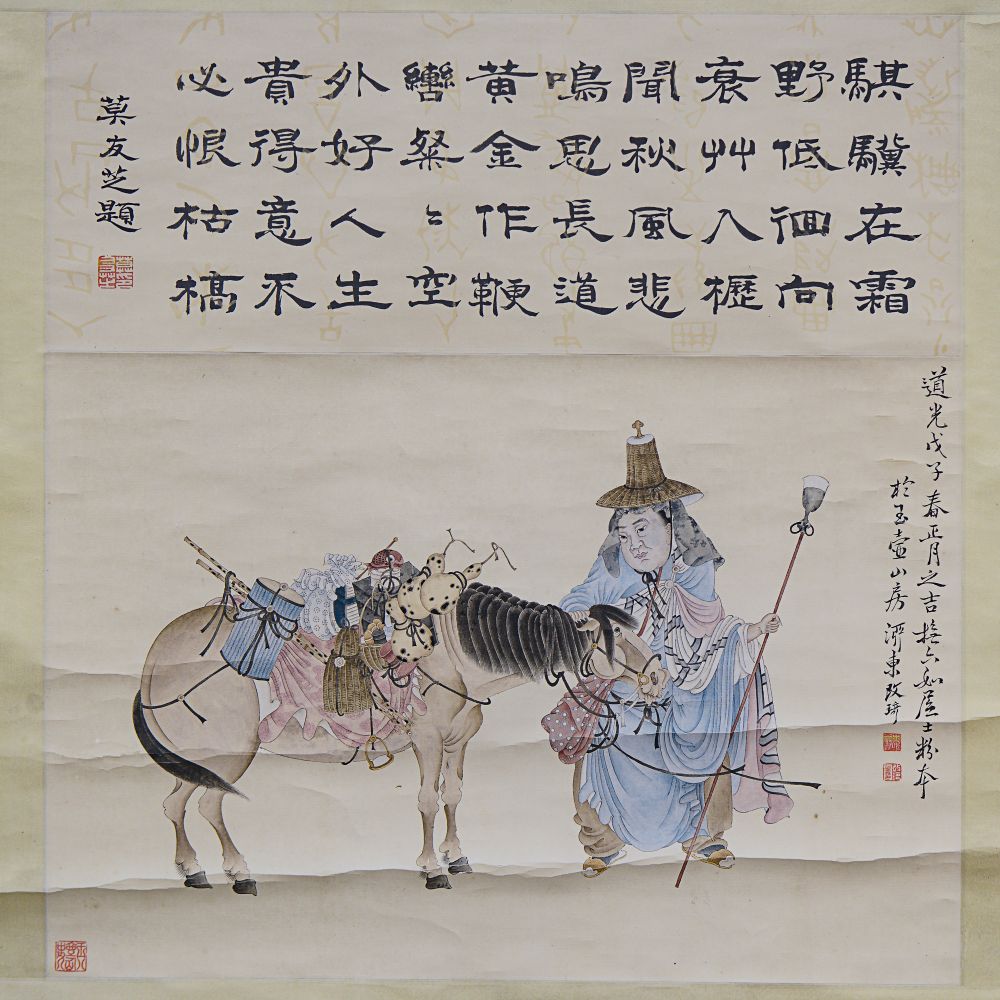 騏驥在霜
野低徊向
衰艸入櫪
聞秋風悲
鳴思長道
黄金作鞭
轡粲〻空
外好人生
貴得意不
必恨枯槁
莫友芝題
道光戊子春正月之吉橅六如居士粉本
於玉壺山房 泖東改琦